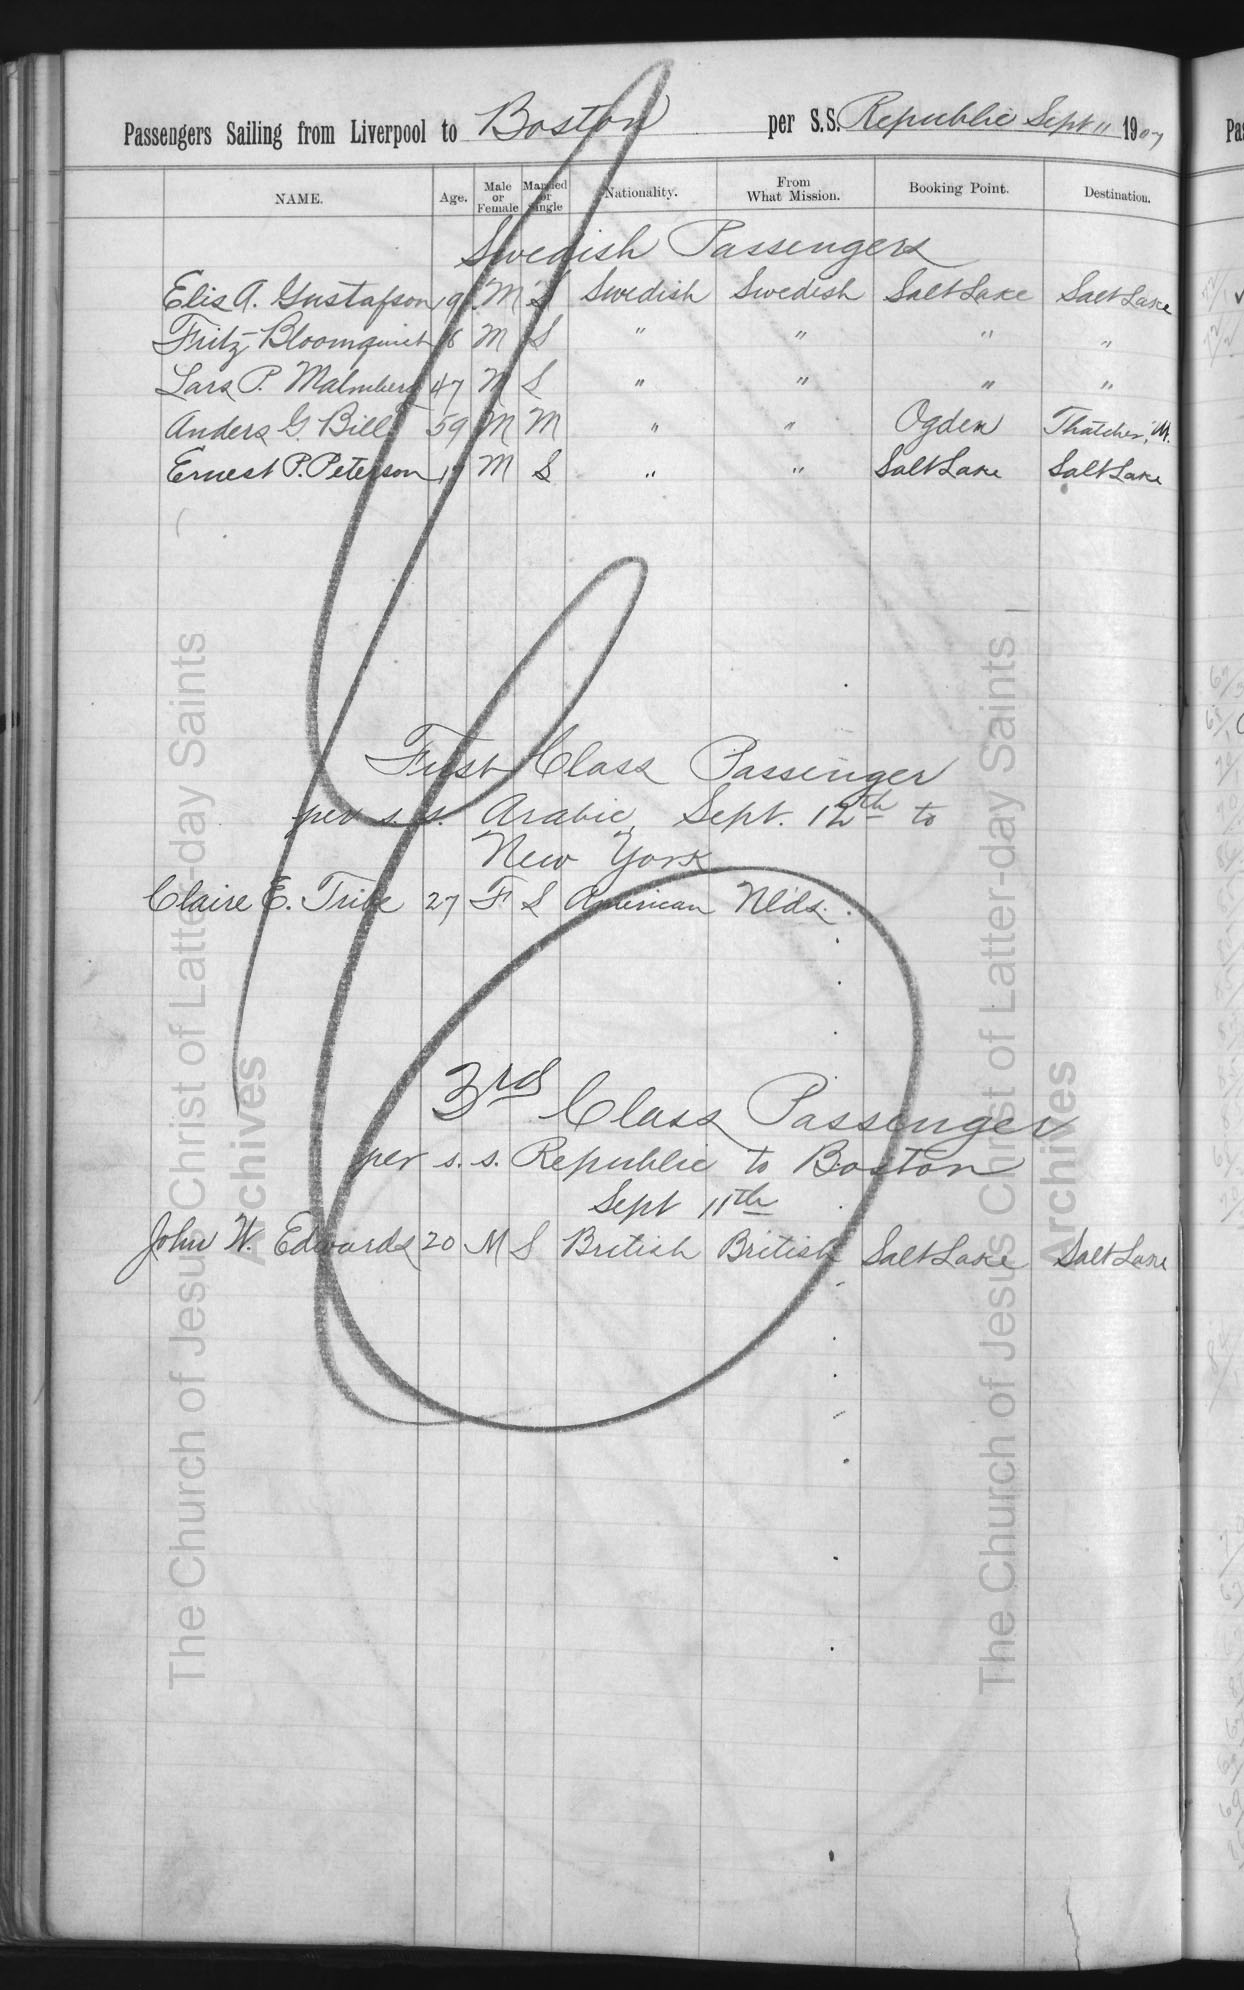 Passengers Sailing from Liverpool to Boston per S.S. Republic Sept 11 1907
NAME. Age. Male or Female Married or Single Nationality. From What Mission. Booking Point. Destination.
Swedish Passengers
Elis A. Gustafson 19 M S Swedish Swedish Salt Lake Salt Lake
Fritz Bloomquist M S " " " "
Lars P. Malmberg 47 M S " " " "
Anders G. Bill 59 M M " " Ogden Thatcher
Ernest P. Peterson M S " " Salt Lake Salt Lake
First Class Passenger
per s.s. Arabic, Sept. 12th to
New York
Claire E. Tribe 27 F S American Nlds.
3rd Class Passenger
per s.s. Republic to Boston
Sept 11th
John W. Edwards 20 M S British British Salt Lake Salt Lake
The Church of Jesus Christ of Latter-day Saints
Archives
The Church of Jesus Christ of Latter-day Saints
Archives